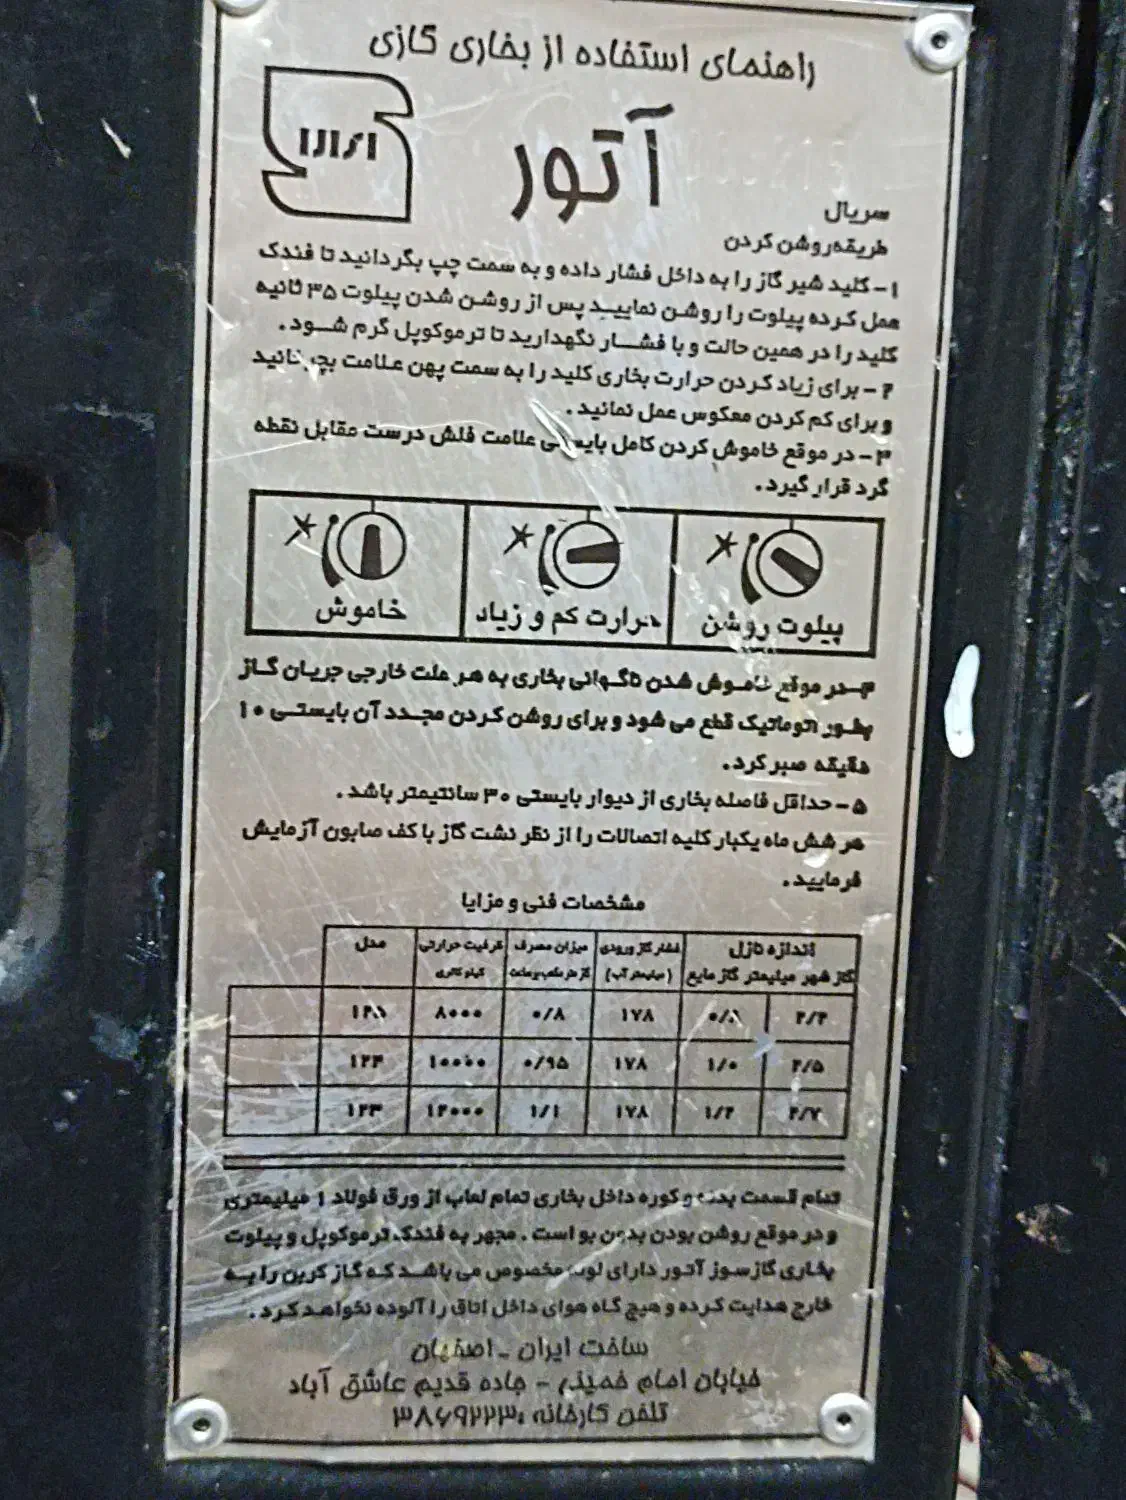 راهنمای استفاده از بخاری گازی
آتور
سریال
طریقه روشن کردن
۱- کلید شیر گاز را به داخل فشار داده و به سمت چپ بگردانید تا فندک
عمل کرده پیلوت را روشن نمایید پس از روشن شدن پیلوت ۳۵ ثانیه
کلید را در همین حالت و با فشار نگهدارید تا ترموکوپل گرم شود.
۲- برای زیاد کردن حرارت بخاری کلید را به سمت پهن علامت بچرخانید
و برای کم کردن معکوس عمل نمائید.
۳- در موقع خاموش کردن کامل بایستی علامت فلش درست مقابل نقطه
گرد قرار گیرد.
پیلوت روشن
حرارت کم و زیاد
خاموش
۴- در موقع خاموش شدن ناگهانی بخاری به هر علت خارجی جریان گاز
بطور اتوماتیک قطع می شود و برای روشن کردن مجدد آن بایستی ۱۰
دقیقه صبر کرد.
۵- حداقل فاصله بخاری از دیوار بایستی ۳۰ سانتیمتر باشد.
هر شش ماه یکبار کلیه اتصالات را از نظر نشت گاز با کف صابون آزمایش
فرمایید.
مشخصات فنی و مزایا
اندازه نازل فشار گاز ورودی میزان مصرف ظرفیت حرارتی مدل
گاز شهر میلیمتر گاز مایع (میلیمتر آب) گاز متر مکعب بر ساعت کیلو کالری
۱۷۸ ۰/۸ ۸۰۰۰
۲/۵ ۱/۰ ۱۷۸ ۰/۹۵ ۱۰۰۰۰ ۱۲۴
۲/۷ ۱/۲ ۱۷۸ ۱/۱ ۱۲۰۰۰ ۱۲۳
تمام قسمت بدنه و کوره داخل بخاری تمام لعاب از ورق فولاد ۱ میلیمتری
و در موقع روشن بودن بدون بو است. مجهر به فندک ترموکوپل و پیلوت
بخاری گازسوز آتور دارای لوله مخصوص می باشد که گاز کربن را به
خارج هدایت کرده و هیچ گاه هوای داخل اتاق را آلوده نخواهد کرد.
ساخت ایران - اصفهان
خیابان امام خمینی - جاده قدیم عاشق آباد
تلفن کارخانه